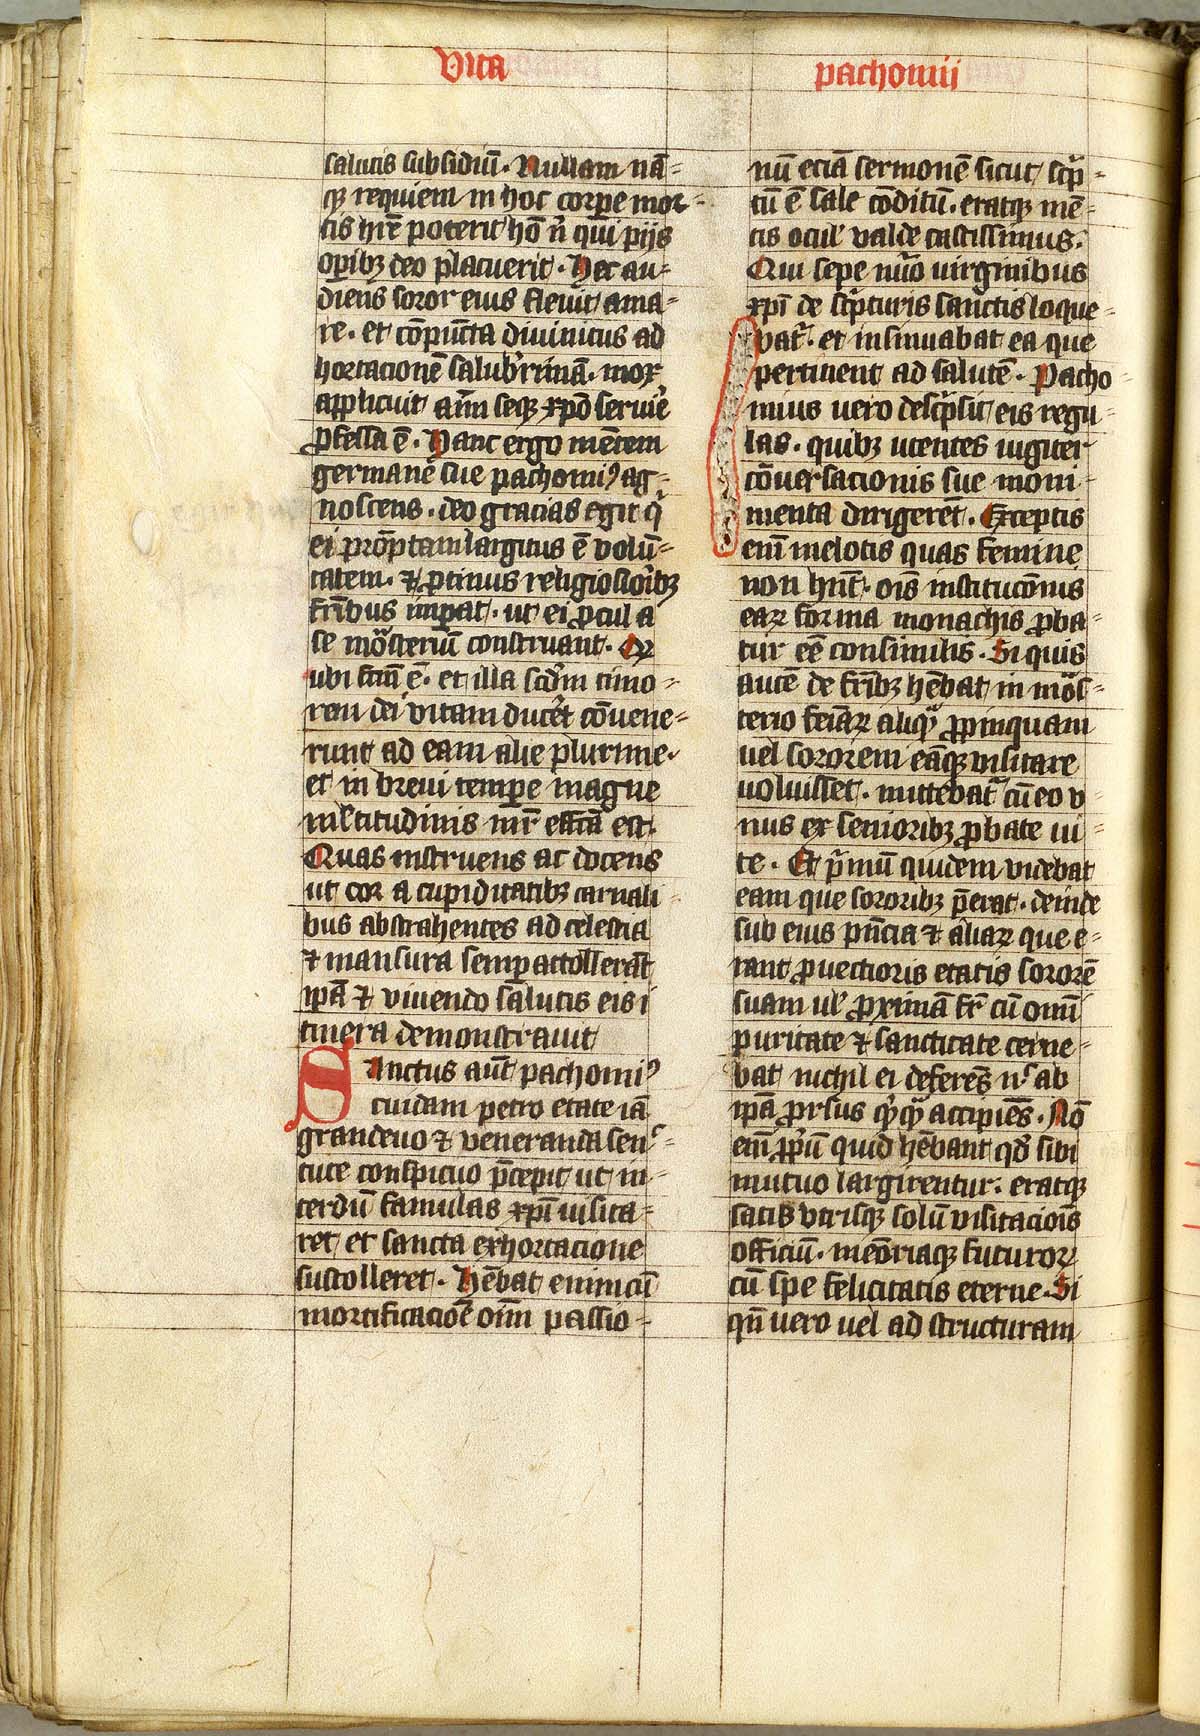 Vita
pachomij
salutis subsidiū. Nullam nā=
qꝫ requiem in hoc corpꝑe mor=
tis hr̄e poterit hō n̄ qm̄ pijs
oꝑibꝫ deo placuerit. Hec au=
diens soror eius fleuit ama=
re. et cōpūcta diuinitus ad
hortacionē salub̛rimā. mox
applicuit aīm seqꝫ xp̄o servir̄e
ꝓfessa ē. Hanc ergo mētem
germane sue pachomiꝰ ag=
noscens. deo gracias egit q̛
ei prōptam largitus ē volū=
tatem. ⁊ ꝓtinus religiosioribꝫ
fr̄ibus imꝑat. ut ei ꝓcul a
se mōsteriū construant. Qꝫ
ubi fcm̄ ē. et illa scd̄m timo=
rem dei vitam ducēt cōuene=
runt ad eam alie plurime.
et in breui tempore magne
ml̄titudinis mr̄ effc̄a est.
Quas instruens ac docens
ut cor a cupiditatibꝫ carnali
bus abstrahentes ad celestia
⁊ mansura semꝑ attollerāt
ip̄ā ⁊ viuendo salutis eis i
tinera demonstrauit
Sanctus aūt pachomiꝰ
cuidam petro etate iā
grandeuo ⁊ veneranda sen=
tute conspicuo p̄cepit ut in=
terdū famulas xp̄i uisita=
ret et sancta exhortacione
sustolleret. Hēbat enim cū
mortificacioē oīm passio=
nū eciā sermonē sicut sc̛p=
tū ē sale cōditū. eratqꝫ mē=
tis ocul̛ valde castissimus.
Qui sepe nūo virginibus
xp̄i de sc̛pturis sanctis loque=
bat̛. et insinuabat ea que
pertinent ad salutē. Pacho=
mius uero desc̛psit eis regu=
las. quibꝫ utentes iugiter
cōuersacionis sue moni=
menta dirigerēt. Exceptis
eni melotis quas femine
non hn̄t. oīs institucōnis
earꝫ forma monachis ꝓba=
tur eē consimilis. Si quis
autē de fr̄ibꝫ hēbat in mōs=
terio feīarꝫ aliqᷓ ꝓpinquam
uel sororem eāqꝫ visitare
uoluisset. mittebat̛ cū eo v=
nus ex senioribꝫ ꝓbate ui=
te. Et p̛mū quidem videbat
eam que sororibꝫ p̄erat. deinde
sub eius pn̄cia ⁊ aliarꝫ que e=
rant ꝓuectioris etatis sororē
suam ul̛ ꝓximā fr̄ cū omī
puritate ⁊ sanctitate cerne=
bat nichil ei deferēs n̛ ab
ip̄a ꝓrsus q̛cqᷓ accipiēs. Nō
em̄ ꝓp̛ū quid hēbant qd̄ sibi
mutuo largirentur. eratqꝫ
satis vtrisqꝫ solū visitacioīs
officiū. memōriaqꝫ futurorꝫ
cū spe felicitatis eterne. Si
qn̄ uero uel ad structuram